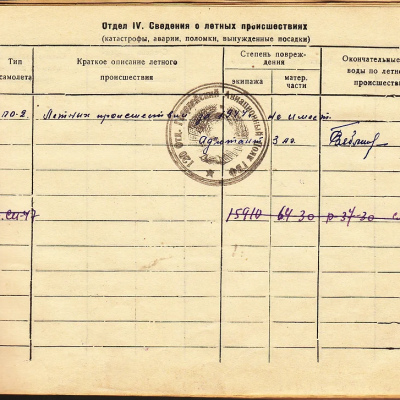 Отдел IV. Сведения о летных происшествиях
(катастрофы, аварии, поломки, вынужденные посадки)
Тип
самолета
Краткое описание летного
происшествия
Степень повреж-
дения
экипажа
матер.
части
Окончательные
воды по летно
происшестви
ПО-2. Летных происшествий не имеет.
Адъютант 3 ао.
15910 64-30